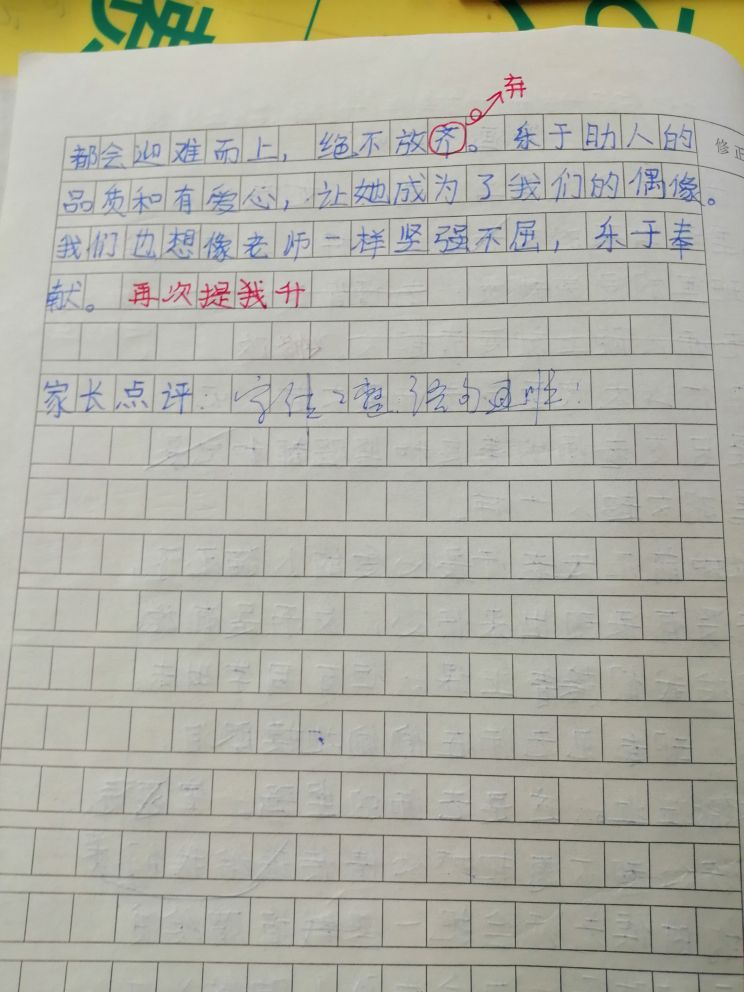 弃
都会迎难而上，绝不放齐。乐于助人的
修正
品质和有爱心，让她成为了我们的偶像。
我们也想像老师一样坚强不屈，乐于奉
献。再次提我升
家长点评：字体工整.语句通顺！